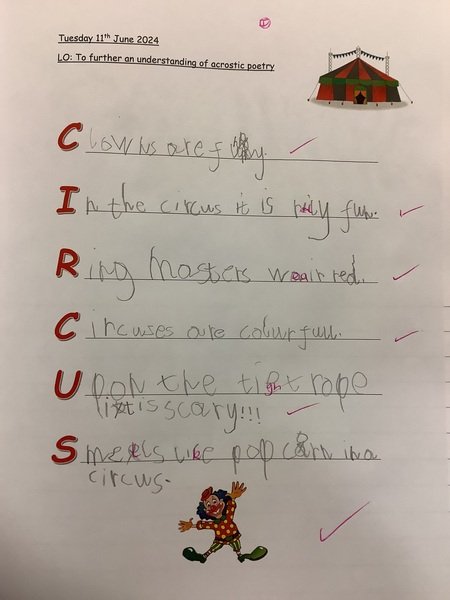 Tuesday 11th June 2024
LO: To further an understanding of acrostic poetry
Clowns are funny.
In the circus it is rely fun.
Ring Masters wear red.
Circuses are colourfull.
Upon the tight rope
it is scary!!!
Smells like pop corn in a
circus.